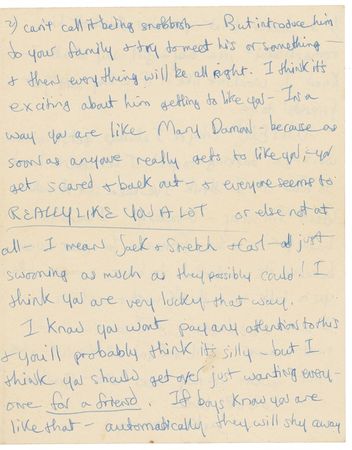 2) can't call it being snobbish — But introduce him
to your family + try to meet his or something —
+ then everything will be all right. I think it's
exciting about him getting to like you — In a
way you are like Mary Damon — because as
soon as anyone really gets to like you, — you
get scared + back out — + everyone seems to
REALLY LIKE YOU A LOT or else not at
all — I mean Jack + Stretch + Carl — all just
swooning as much as they possibly could! I
think you are very lucky that way.
I know you wont pay any attention to this
+ you'll probably think it's silly — but I
think you should get over just wanting every-
one for a friend. If boys know you are
like that — automatically they will shy away